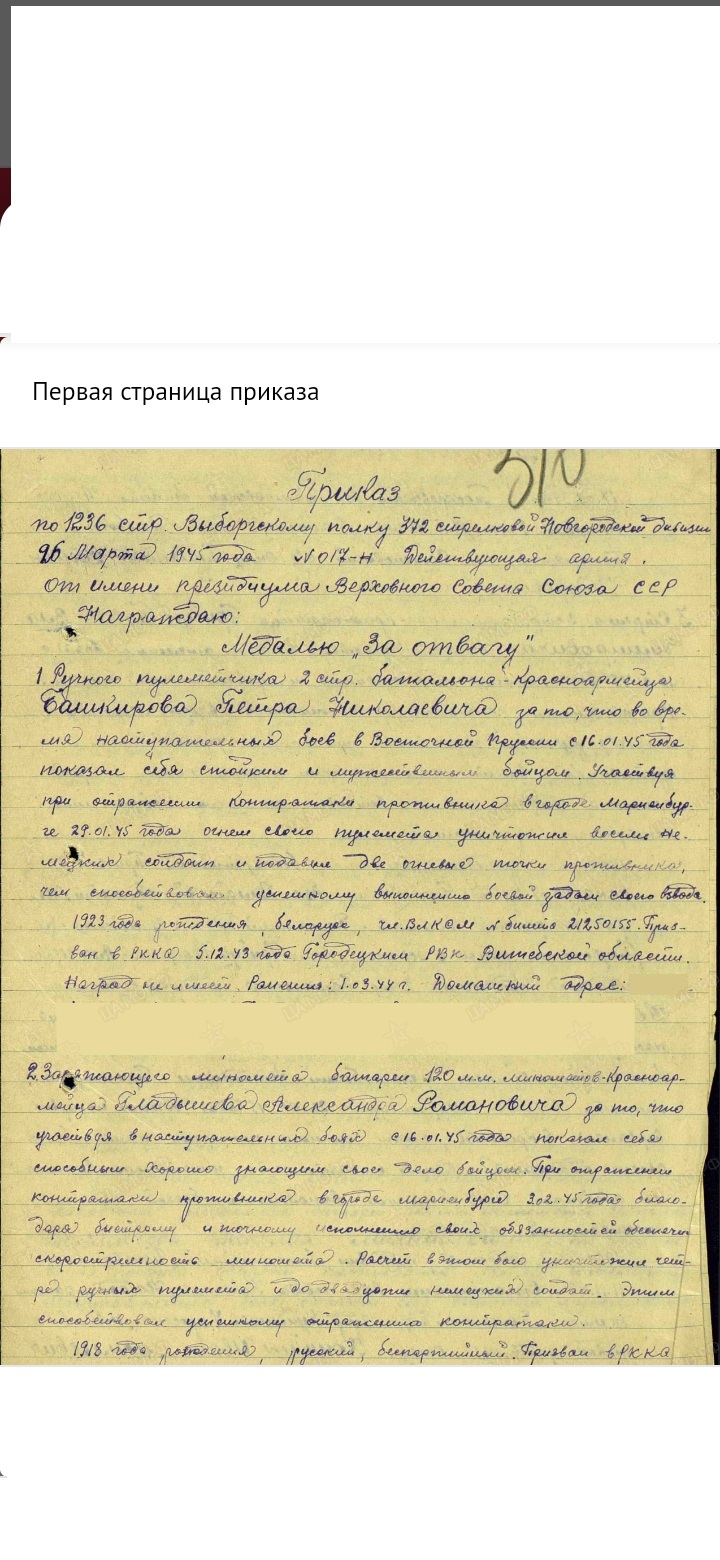 Первая страница приказа
310
Приказ
по 1236 стр. Выборгскому полку 372 стрелковой Новгородской дивизии
26 Марта 1945 года N 017-н Действующая армия.
От имени президиума Верховного Совета Союза ССР
Награждаю:
Медалью „За отвагу"
1. Ручного пулеметчика 2 стр. батальона - Красноармейца
Башкирова Петра Николаевича за то, что во вре-
мя наступательных боев в Восточной Пруссии с 16.01.45 года
показал себя стойким и мужественным бойцом. Участвуя
при отражении контратаки противника в городе Мариенбур-
ге 29.01.45 года огнем своего пулемета уничтожил восемь не-
мецких солдат и подавил две огневые точки противника,
чем способствовал успешному выполнению боевой задачи своего взвода.
1923 года рождения, беларус, чл. ВЛКСМ N билета 21250155. Приз-
ван в РККА 5.12.43 года Городецким РВК Витебской области.
Наград не имеет. Ранения: 1.03.44 г. Домашний адрес:
2. Заряжающего миномета батареи 120 м.м. минометов - Красноар-
мейца Гладышева Александра Романовича за то, что
участвуя в наступательных боях с 16.01.45 года показал себя
способным хорошо знающим свое дело бойцом. При отражении
контратаки противника в городе Мариенбурге 3.02.45 года благо-
даря быстрому и точному исполнению своих обязанностей обеспечил
скорострельность миномета. Расчет в этом бою уничтожил чет-
ре ручных пулемета и до двадцати немецких солдат. Этим
способствовал успешному отражению контратаки.
1918 года рождения, русский, беспартийный. Призван в РККА